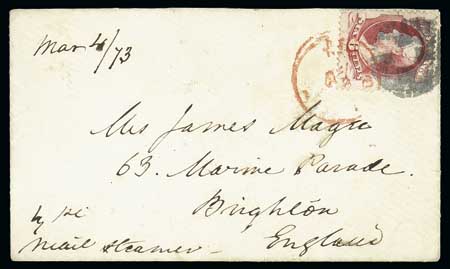 Mar 4/73
Mrs James Magee
63. Marine Parade.
Brighton
England
by 1st
Mail Steamer